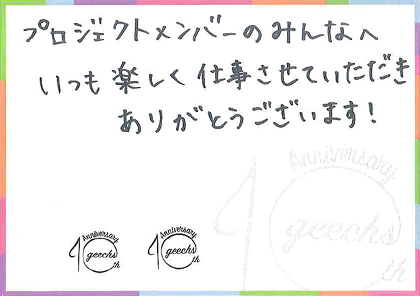 プロジェクトメンバーのみんなへ
いつも楽しく仕事させていただき
ありがとうございます!
10 Anniversary geechs th
10 Anniversary geechs th
10 Anniversary geechs th